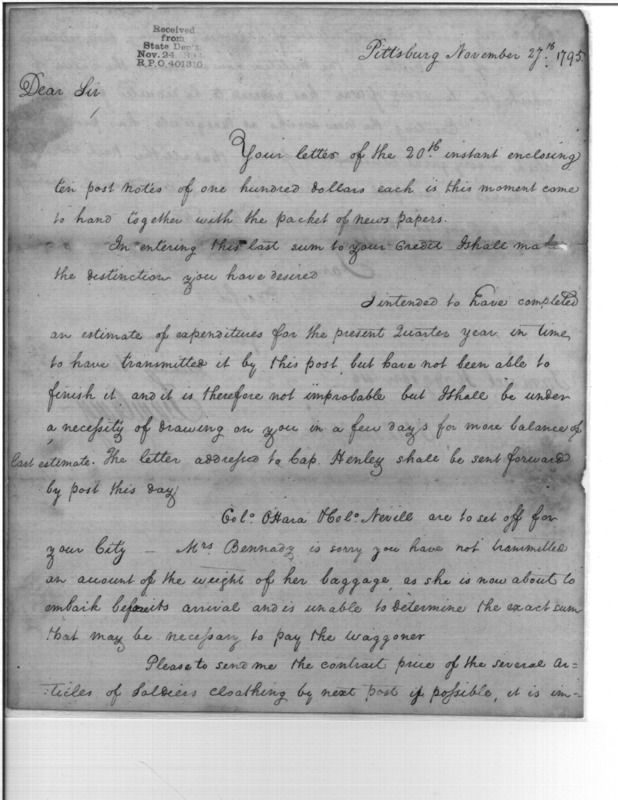 Received
from
State Dep't
Nov. 24
R.P.O. 401316
Pittsburg November 27.th 1795.
Dear Sir
Your letter of the 20th instant enclosing
ten post notes of one hundred dollars each is this moment come
to hand together with the packet of news papers.
In entering this last sum to your Credit I shall make
the distinction you have desired
I intended to have completed
an estimate of expenditures for the present Quarter year in time
to have transmitted it by this post, but have not been able to
finish it, and it is therefore not improbable but I shall be under
a necessity of drawing on you in a few days for more balance of
last estimate. The letter addressed to Cap. Henley shall be sent forward
by post this day
Colo. OHara & Colo. Nevill are to set off for
your City — Mrs Bennady is sorry you have not transmitted
an account of the weight of her baggage, as she is now about to
embark before its arrival and is unable to determine the exact sum
that may be necessary to pay the waggoner
Please to send me the contract price of the several ar=
:ticles of Soldiers cloathing by next post if possible, it is im-